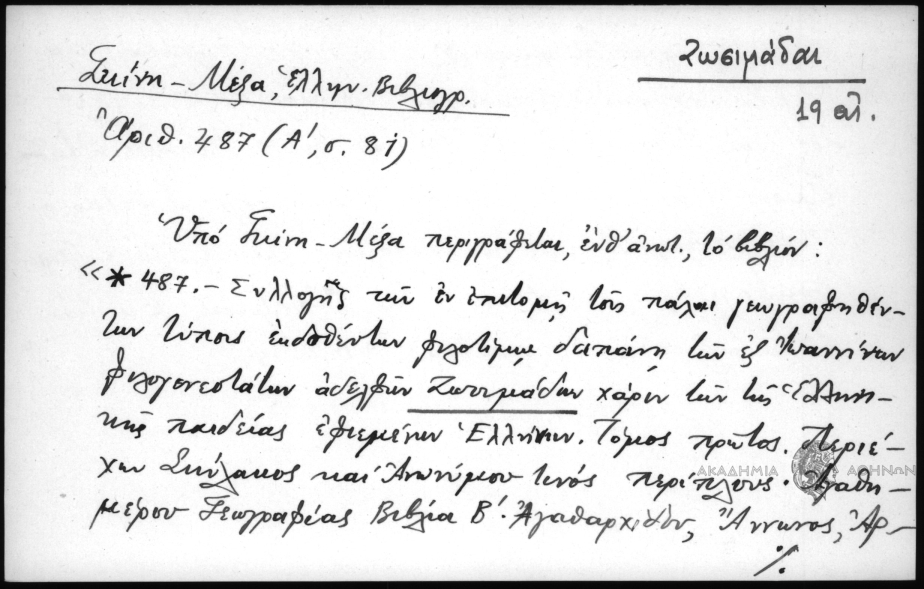 Ζωσιμάδαι
19 αἰ.
Γκίνη – Μέξα, Ἑλλην. Βιβλιογρ.
Ἀριθ. 487 (Α', σ. 81)
Ὑπό Γκίνη – Μέξα περιγράφεται, ἐνθ' ἀνωτ., τό βιβλίον:
«* 487. – Συλλογῆς τῶν ἐν ἐπιτομῇ τοῖς πάλαι γεωγραφηθέν-
των τύποις ἐκδοθέντων φιλοτίμῳ δαπάνῃ τῶν ἐξ Ἰωαννίνων
φιλογενεστάτων ἀδελφῶν Ζωσιμάδων χάριν τῶν τῆς Ἑλληνι-
κῆς παιδείας ἐφιεμένων Ἑλλήνων. Τόμος πρῶτος. Περιέ-
χων Σκύλακος καί Ἀνωνύμου τινός περίπλους· Ἀγαθη-
μέρου Γεωγραφίας Βιβλία Β'· Ἀγαθαρχίδου, Ἄννωνος, Ἀρ-
./.
ΑΚΑΔΗΜΙΑ ΑΘΗΝΩΝ